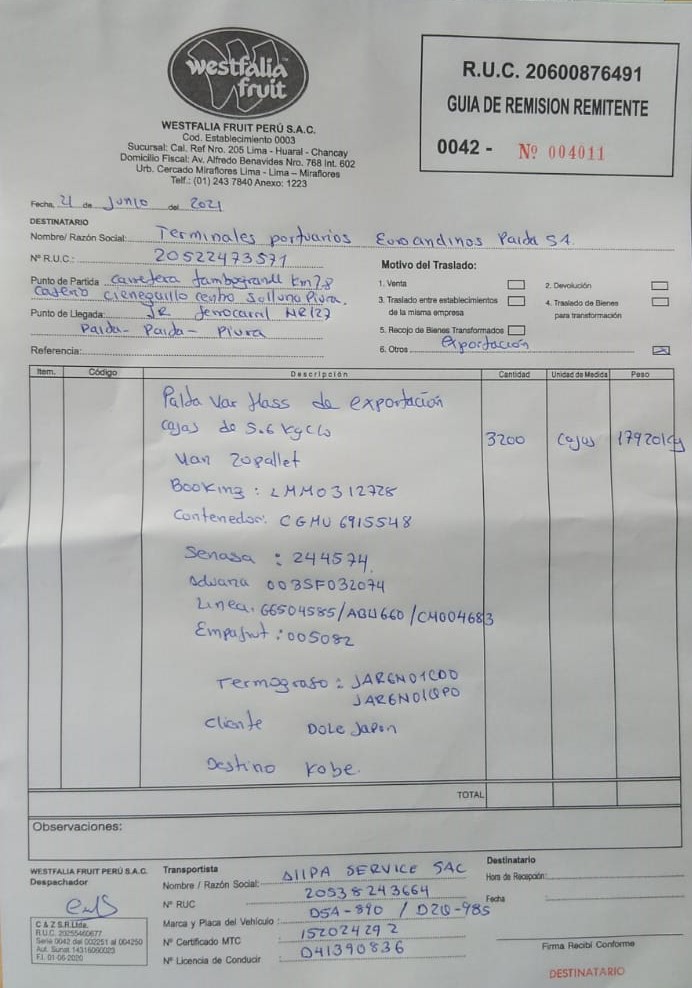 westfalia
fruit
WESTFALIA FRUIT PERÚ S.A.C.
Cod. Establecimiento 0003
Sucursal: Cal. Ref Nro. 205 Lima - Huaral - Chancay
Domicilio Fiscal: Av. Alfredo Benavides Nro. 768 Int. 602
Urb. Cercado Miraflores Lima - Lima - Miraflores
Telf.: (01) 243 7840 Anexo: 1223
R.U.C. 20600876491
GUIA DE REMISION REMITENTE
0042 - Nº 004011
Fecha, 21 de Junio del 2021
DESTINATARIO
Nombre/ Razón Social: Terminales portuarios Euroandinos Paida SA.
Nº R.U.C.: 20522473571
Punto de Partida carretera tambogrande km 7.8
Caserio cieneguillo centro Sullana Piura.
Punto de Llegada: JR ferrocarril NR127
Paida- Paida- Piura
Referencia:
Motivo del Traslado:
1. Venta
2. Devolución
3. Traslado entre establecimientos
de la misma empresa
4. Traslado de Bienes
para transformación
5. Recojo de Bienes Transformados
6. Otros exportación
Item. Código Descripción Cantidad Unidad de Medida Peso
Palta Var Hass de exportación
cajas de 5.6 kg c/u 3200 cajas 17920kg
Van 20 pallet
Booking: LMM0312728
Contenedor: CGMU 6915548
Senasa : 244574
Aduana 003SF032074
Linea. G6504585/ABU660/CM004683
Empafrut: 005082
Termografo: JAR6N01CD0
JAR6N01QP0
Cliente Dole Japon
Destino Kobe.
TOTAL
Observaciones:
WESTFALIA FRUIT PERÚ S.A.C.
Despachador
C & Z S.R.Ltda.
R.U.C. 20255460677
Serie 0042 del 002251 al 004250
Aut. Sunat 14316060023
F.I. 01-06-2020
Transportista
Nombre / Razón Social: AIIPA SERVICE SAC
Nº RUC 20538243664
Marca y Placa del Vehículo : D5A-890 / D2Q-985
Nº Certificado MTC 152024292
Nº Licencia de Conducir D41390836
Destinatario
Hora de Recepción:
Fecha
Firma Recibí Conforme
DESTINATARIO